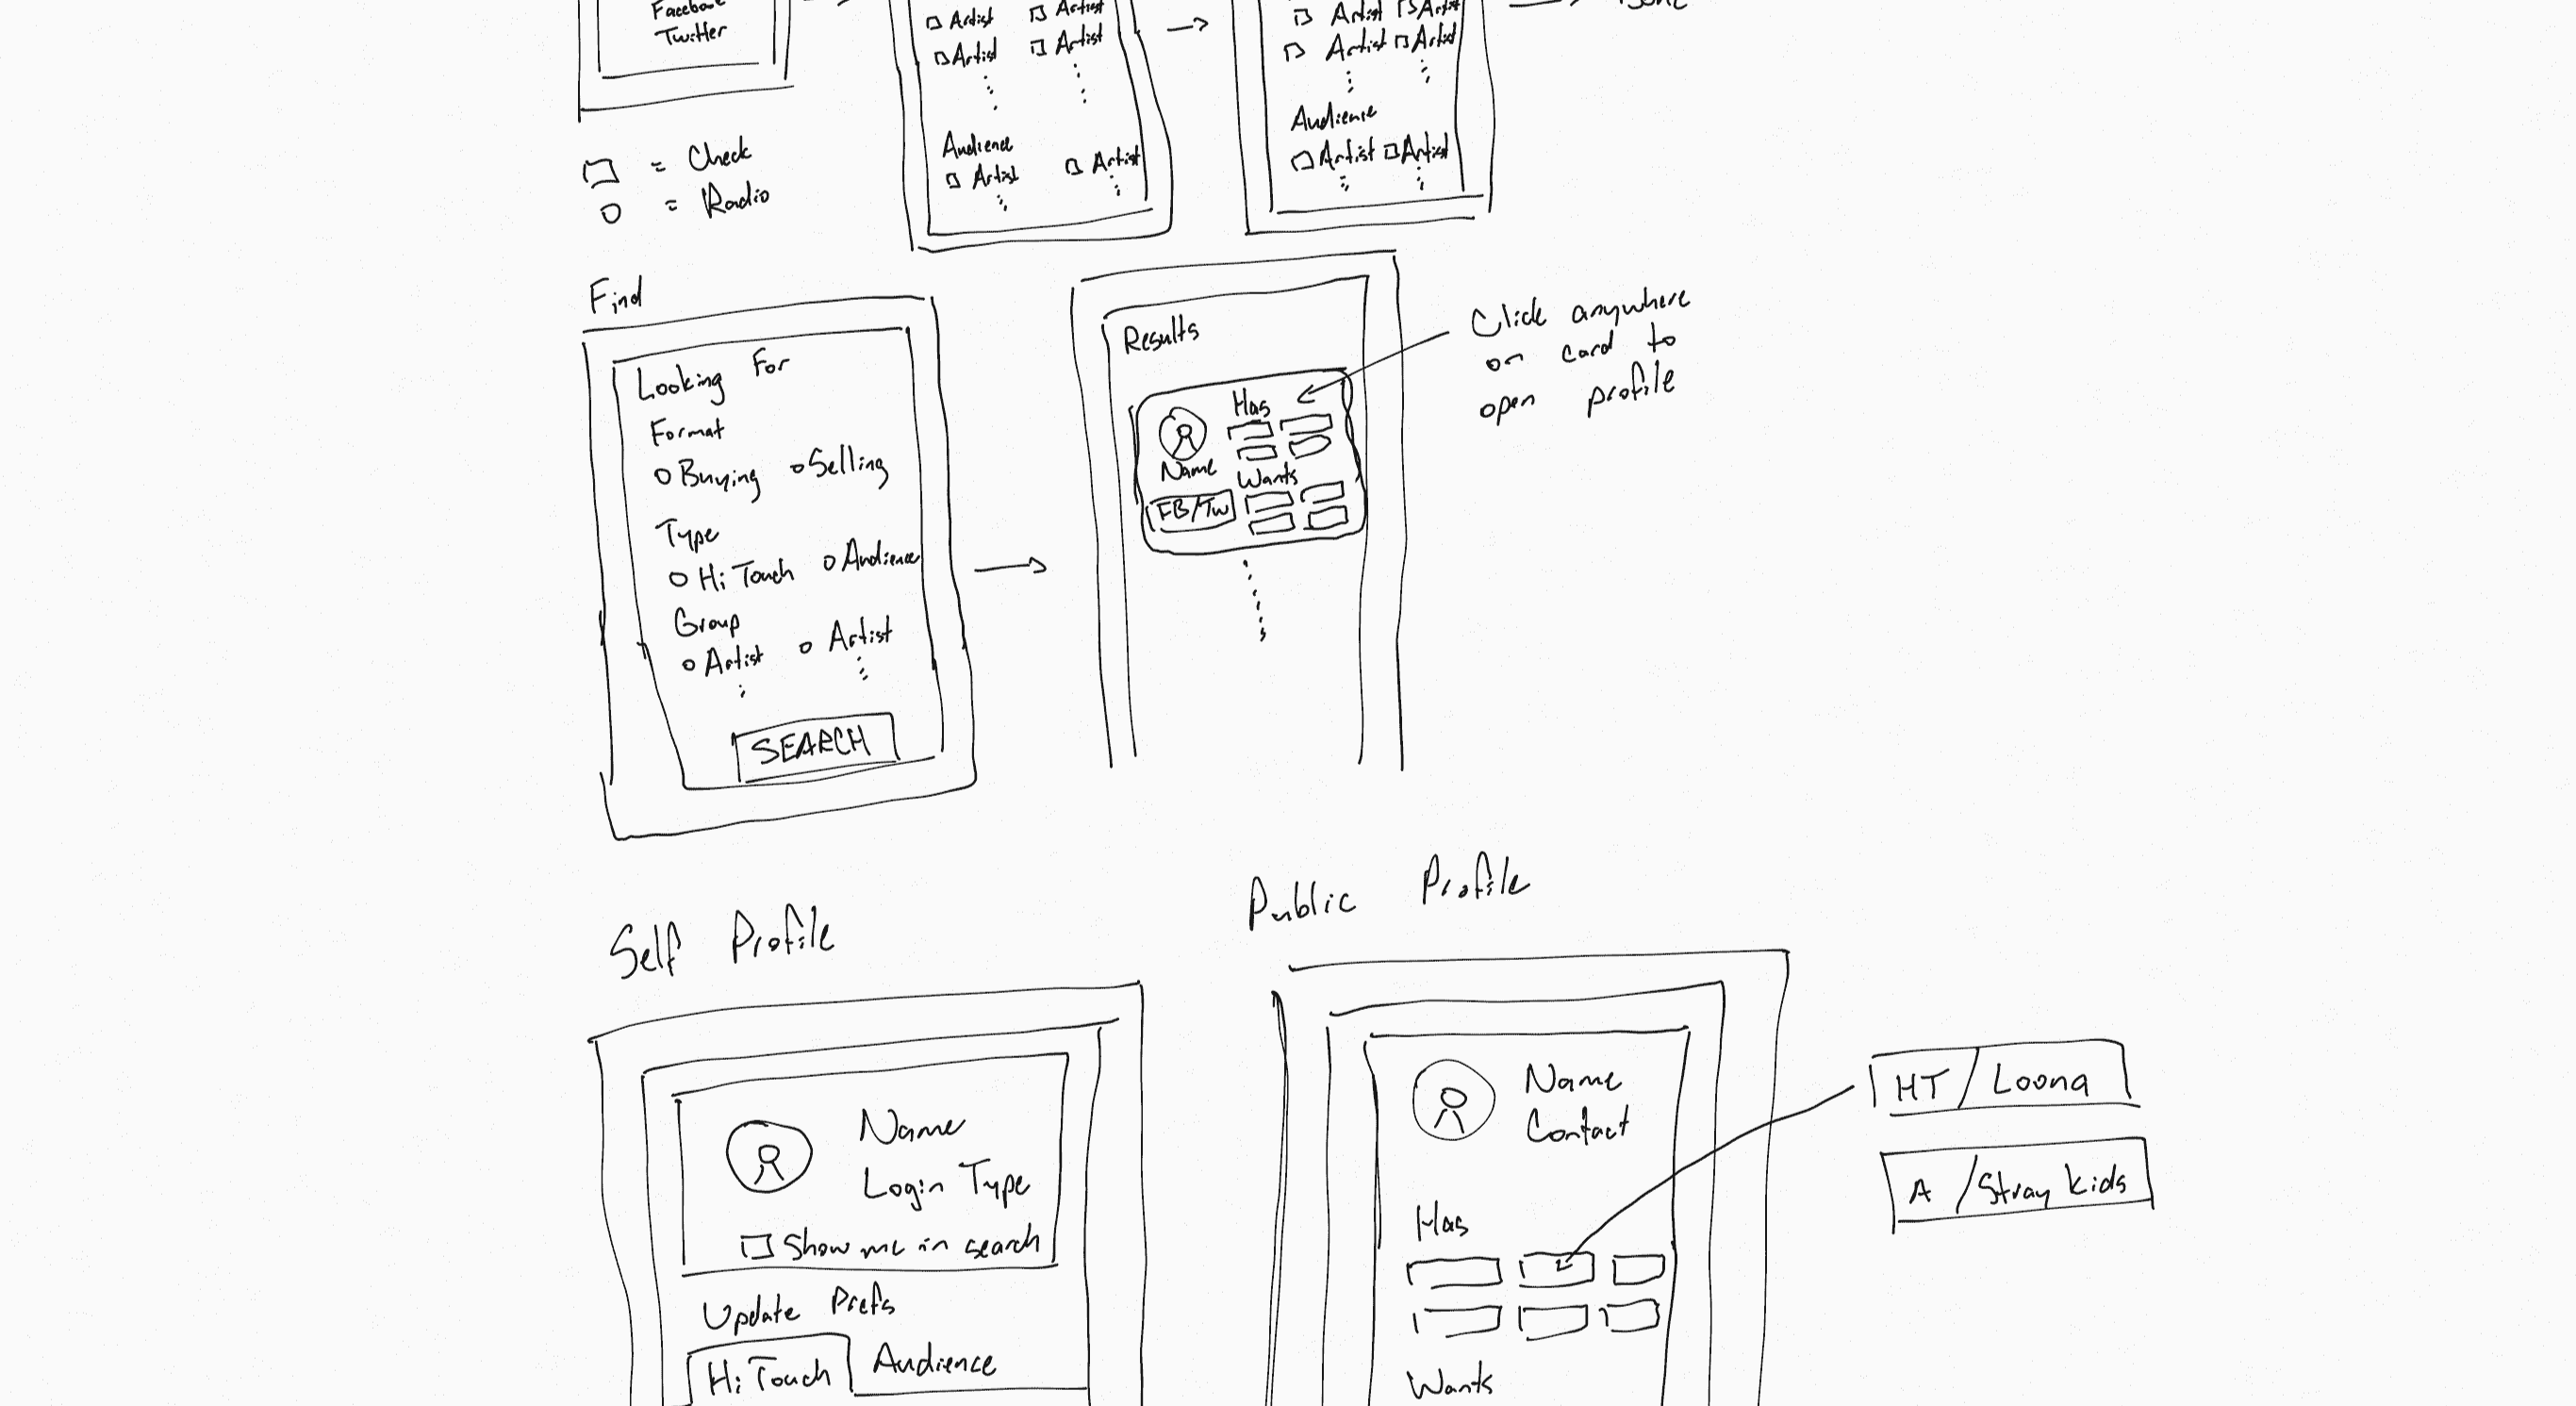 Facebook
Twitter
□ Artist □ Artist
□ Artist □ Artist
Audience
□ Artist □ Artist
□ Artist □ Artist
□ Artist □ Artist
Audience
□ Artist □ Artist
□ = Check
○ = Radio
Find
Looking For
Format
○ Buying ○ Selling
Type
○ Hi Touch ○ Audience
Group
○ Artist ○ Artist
SEARCH
Results
Has
Name
Wants
FB/Tw
Click anywhere
on card to
open profile
Self Profile
Name
Login Type
□ Show me in search
Update Prefs
Hi Touch Audience
Public Profile
Name
Contact
Has
Wants
HT / Loona
A / Stray Kids